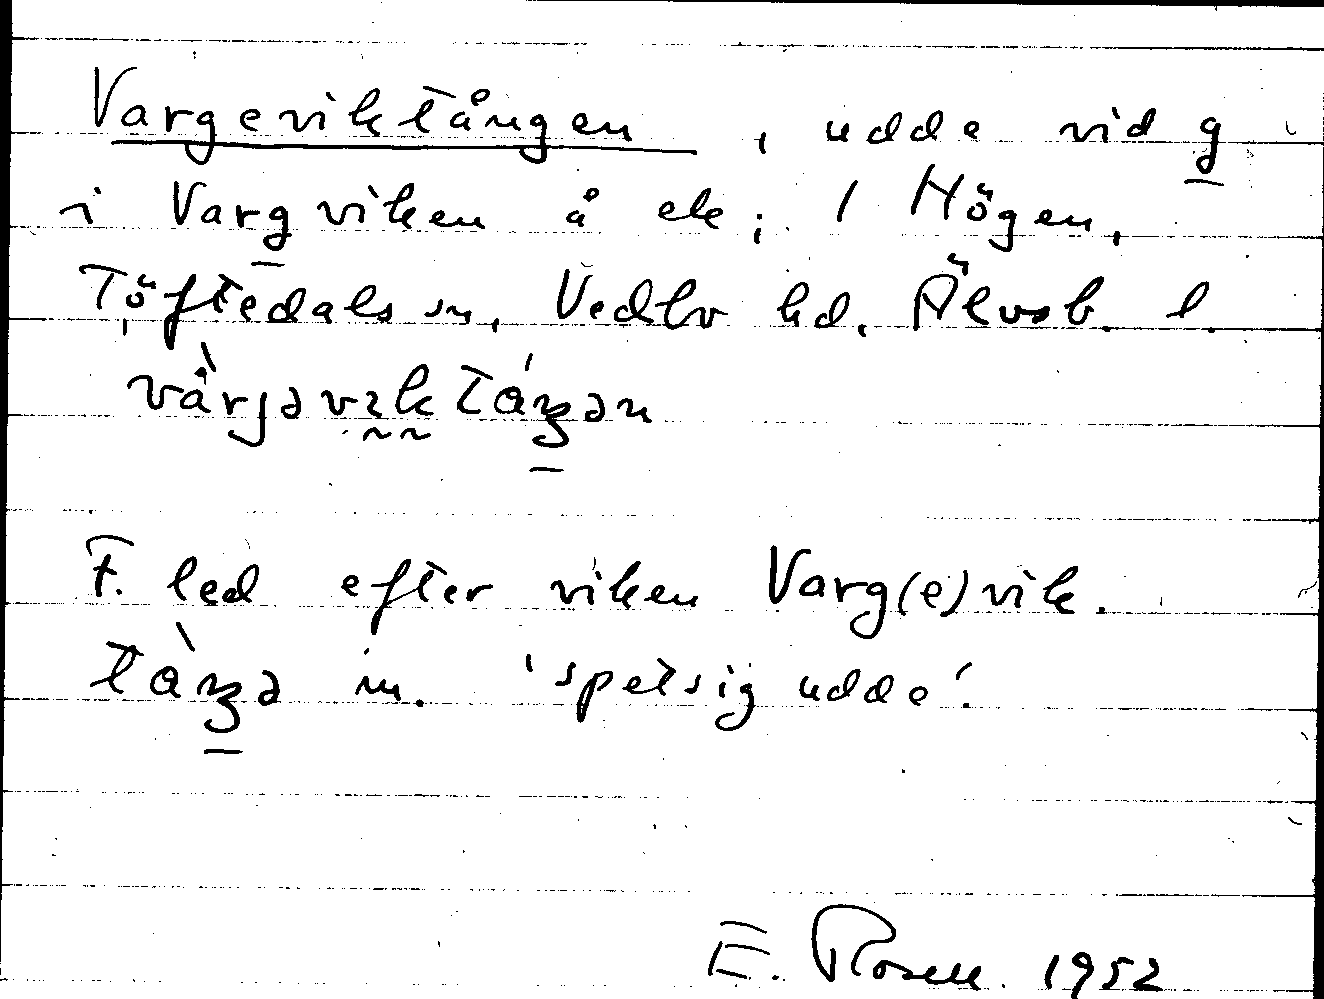 Vargeviktången, udde vid g
i Vargviken å ek; 1 Högen,
Töftedals sn, Vedbo hd. Älvsb. l.
F. led efter viken Varg(e)vik.
m. 'spetsig udde'.
E. Rosell. 1952